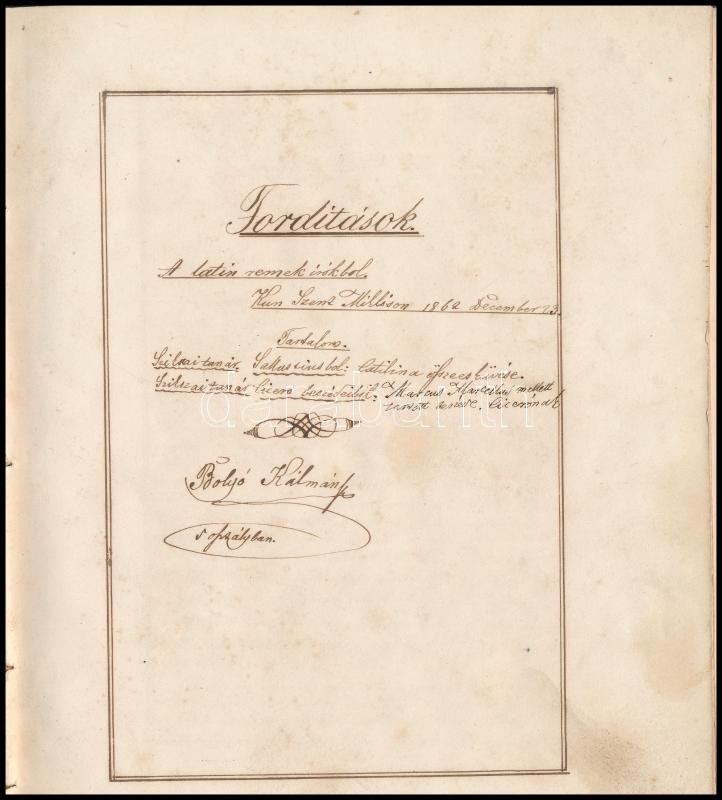 Fordítások.
A latin remek irókbol.
Kun Szent Miklóson 1862 December 23.
Tartalom.
Szilszai tanár. Sallustiusbol: Catilina összeesküvése.
Szilszai tanár Cicero beszédeiből. Marcus Marcellus mellett
Cicerónak
Bolyó Kálmán
5 oszályban.
darabanth